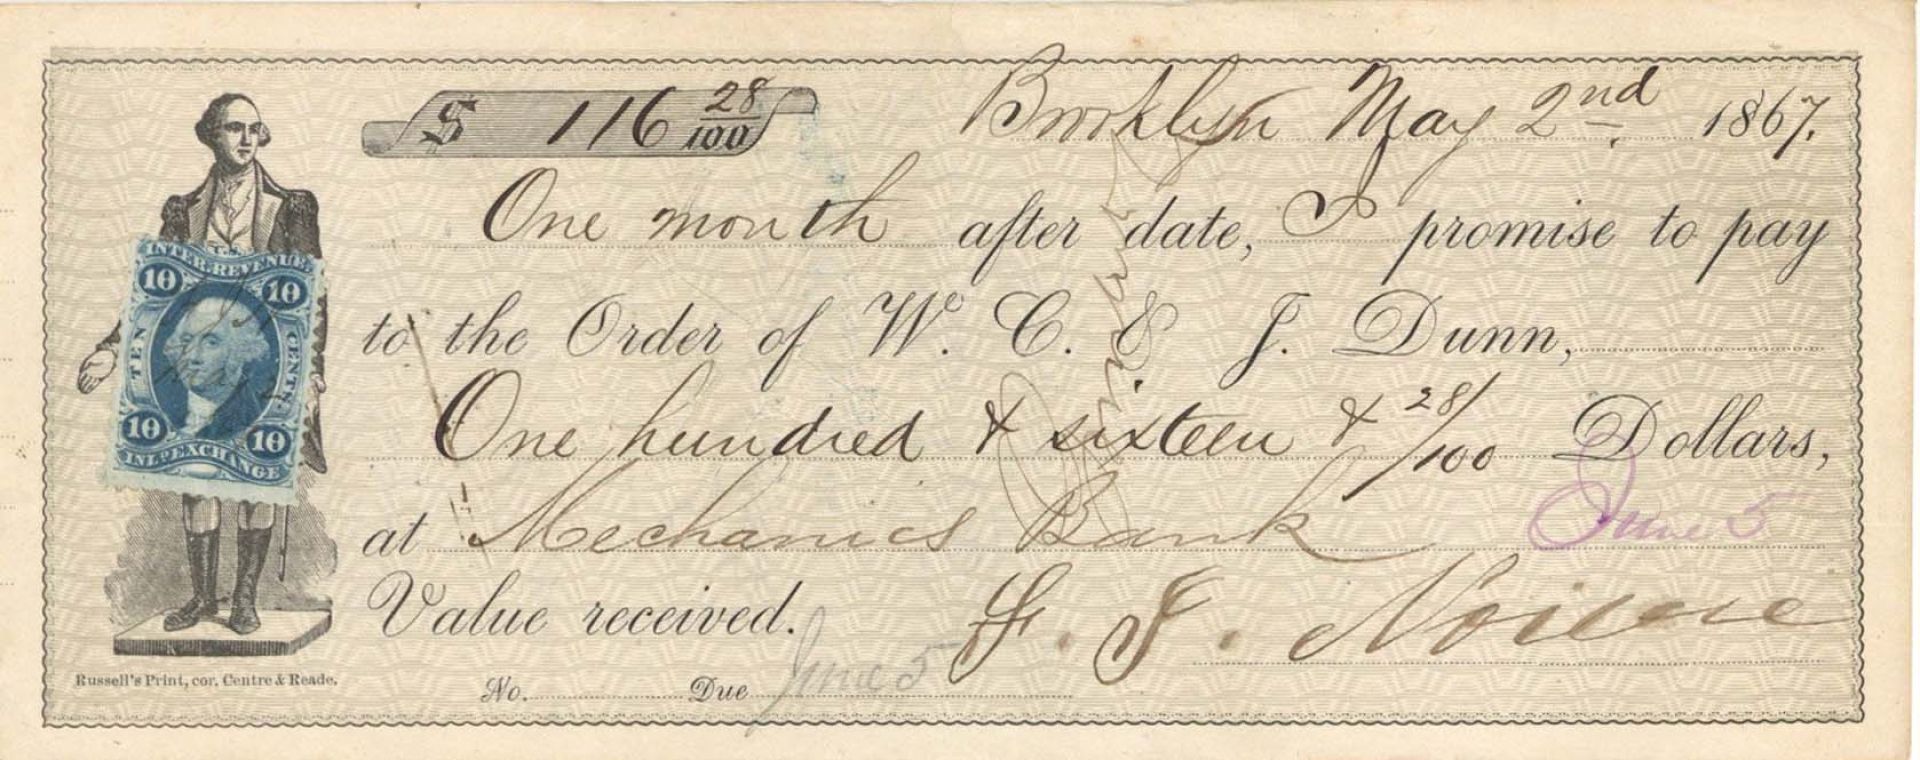 $ 116 28/100 Brooklyn May 2nd 1867.
One month after date, I promise to pay
to the Order of W. C. & J. Dunn,
One hundred & sixteen & 28/100 Dollars,
at Mechanics Bank
June 5
Value received.
No. Due June 5
INTER. REVENUE
10 10
TEN CENTS
10 10
INL. EXCHANGE
Russell's Print, cor. Centre & Reade.